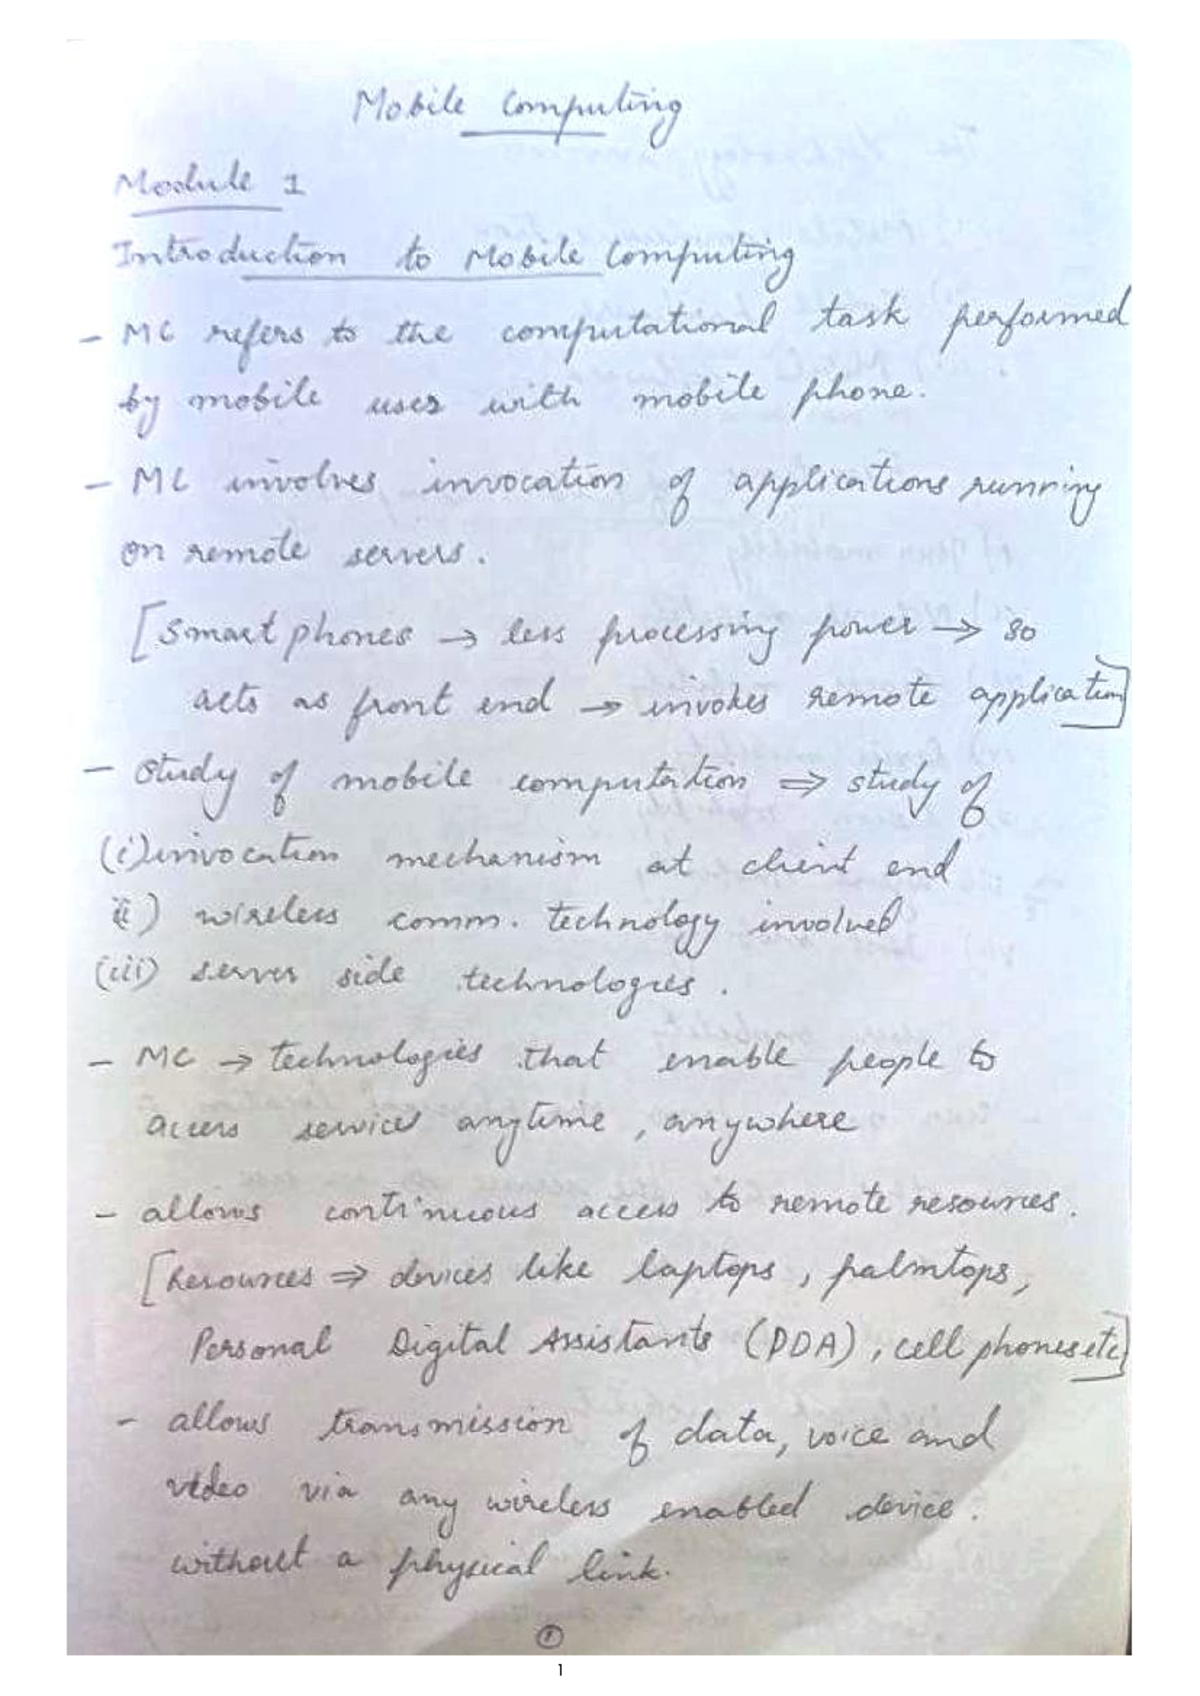 Mobile Computing
Module 1
Introduction to Mobile Computing
- MC refers to the computational task performed
by mobile user with mobile phone.
- MC involves invocation of applications running
on remote servers.
[Smart phones → less processing power → so
acts as front end → invokes remote application]
- study of mobile computation ⇒ study of
(i) invocation mechanism at client end
ii) wireless comm. technology involved
(iii) server side technologies.
- MC → technologies that enable people to
access services anytime, anywhere
- allows continuous access to remote resources.
[Resources ⇒ devices like laptops, palmtops,
Personal Digital Assistants (PDA), cell phones etc]
- allows transmission of data, voice and
video via any wireless enabled device.
without a physical link.
1
1